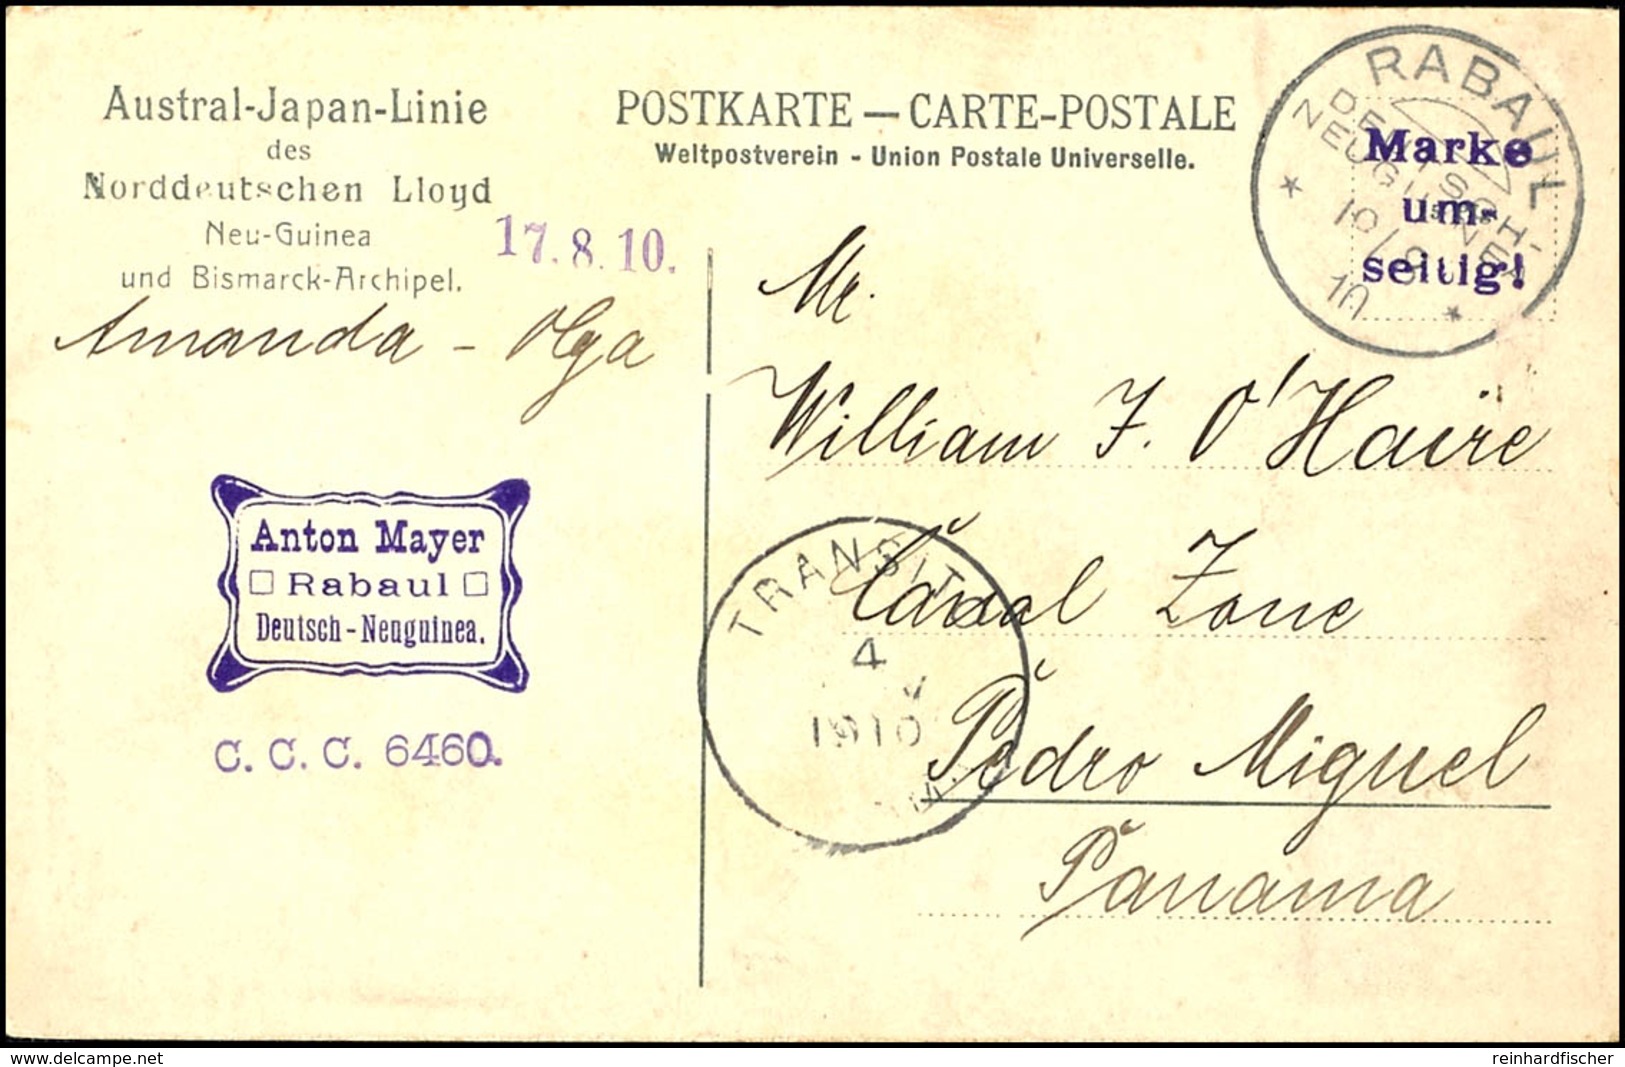 Austral-Japan-Linie
des
Norddeutschen Lloyd
Neu-Guinea
und Bismarck-Archipel.
17.8.10.
Amanda - Olga
POSTKARTE — CARTE-POSTALE
Weltpostverein - Union Postale Universelle.
RABAUL
DEUTSCH-
NEUGUINEA
10/9
10
Marke
um-
seitig!
Mr.
William F. O'Haire
Canal Zone
Pedro Miguel
Panama
TRANSIT
4
1910
Anton Mayer
Rabaul
Deutsch-Neuguinea.
C. C. C. 6460.
www.delcampe.net
reinhardfischer